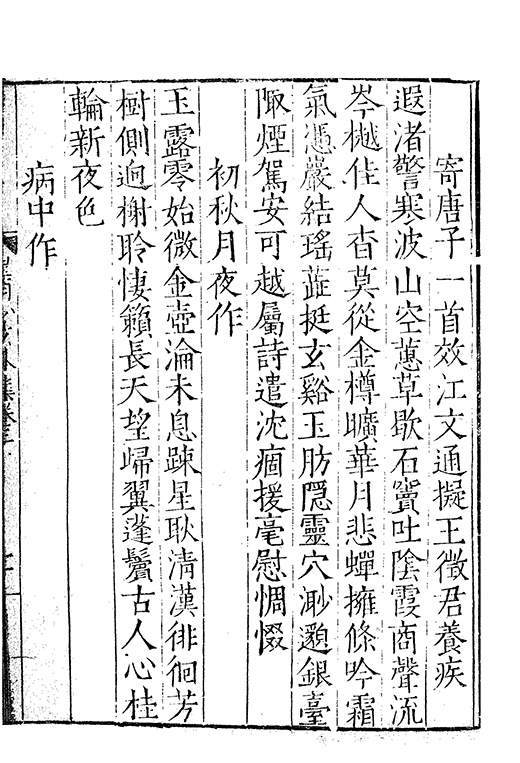 寄唐子一首效江文通擬王徵君養疾
遐渚警寒波山空蕙草歇石竇吐陰霞商聲流
岑樾佳人杳莫從金樽曠華月悲蟬擁條吟霜
氣憑巖結瑤蕋挺玄谿玉肪隱靈穴渺邈銀臺
陬煙駕安可越屬詩遣沈痼援毫慰惆惙
初秋月夜作
玉露零始微金壺淪未息踈星耿清漢徘徊芳
樹側逈榭聆悽籟長天望歸翼蓬鬢古人心桂
輪新夜色
病中作